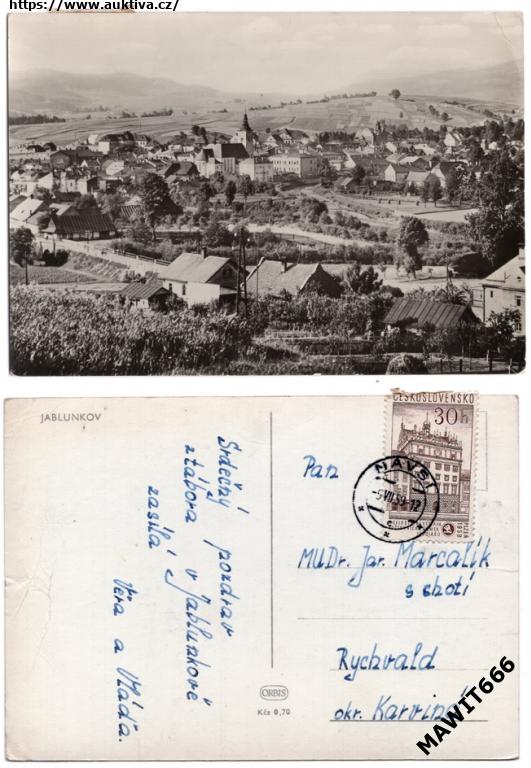 https://www.auktiva.cz/
JABLUNKOV
Srdečný pozdrav
z tábora v Jablunkově
zasílá
Věra a Vláďa.
ORBIS
Kčs 0,70
ČESKOSLOVENSKO
30h
NÁVSÍ
-5.VII.59-12
PLZEŇ 1959
Pan
MUDr. Jar. Marcalík
s chotí
Rychvald
okr. Karviná
MAWIT666